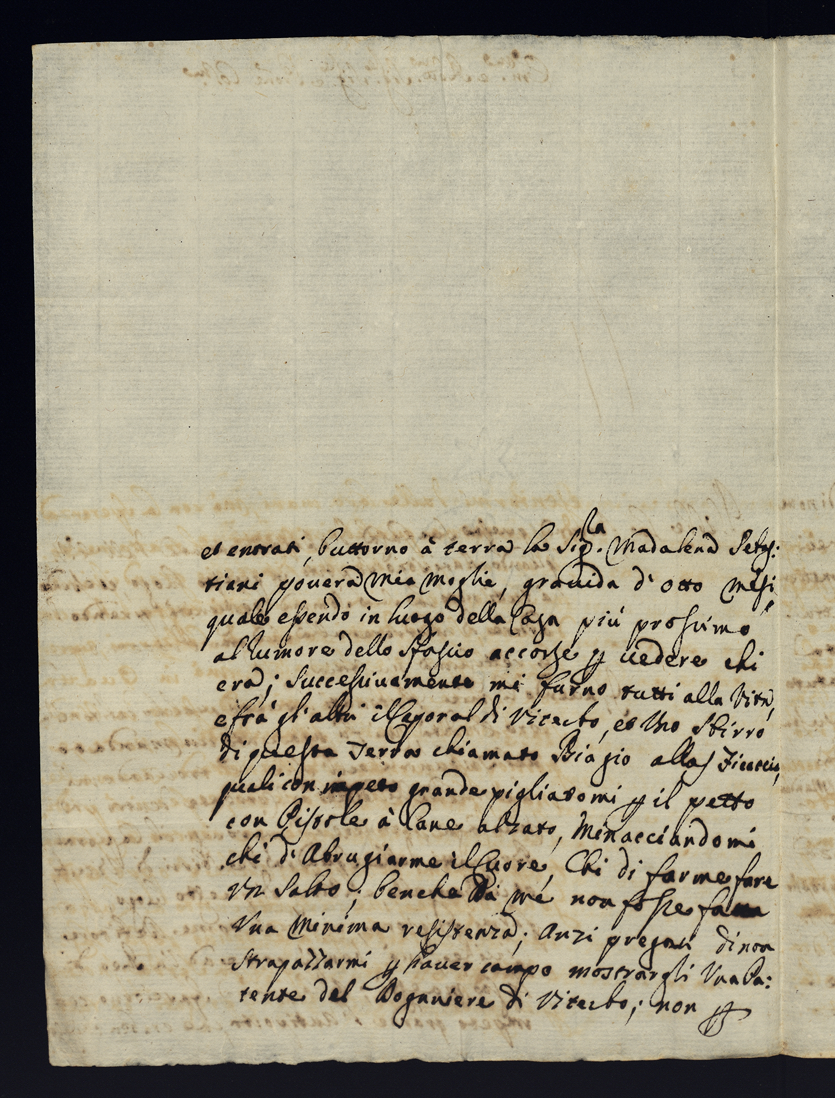 et entrati, buttorno à terra la Sig.ra Madalena Sebas:
tiani povera mia moglie, gravida d'otto mesi,
quale essendo in luogo della Casa più prossimo
al rumore dello sfascio accorse p vedere chi
era; successivamente mi furno tutti alla vita,
e frà gl'altri il Caporal di Viterbo, et uno sbirro
di questa Terra chiamato Biagio alla
quali con impeto grande pigliatomi p il petto
con Pistole à Cane alzato, minacciandomi
chi d'Abrugiarme il Cuore, Chi di farme fare
un salto; benche da mé non fosse fatta
una minima resistenza; Anzi pregati di non
strapazzarmi p haver campo mostrargli una Pa:
tente del Doganiere di Viterbo; non p